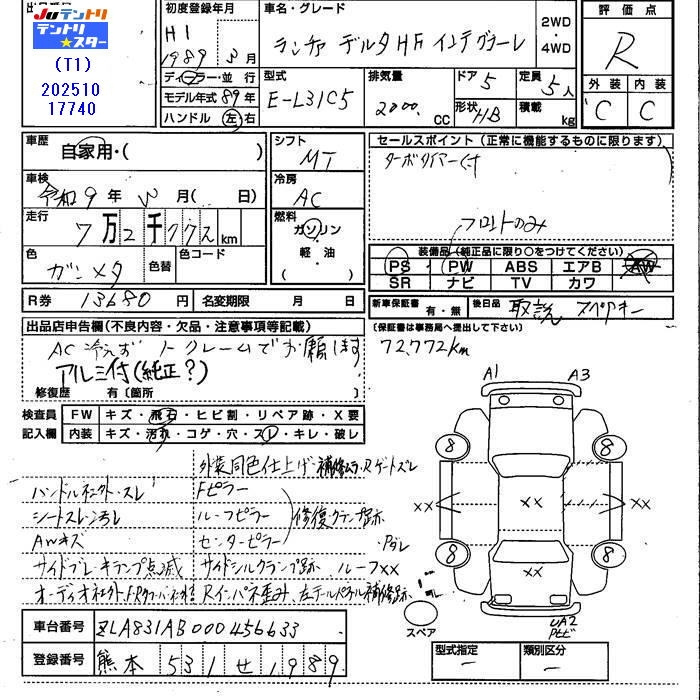 出品番号
Juテントリ
テントリ★スター
(T1)
202510
17740
初度登録年月
H1
1989年 3月
ディーラー・並行
モデル年式 89年
ハンドル 左 右
車名・グレード
ランチャ デルタHFインテグラーレ
2WD
・
4WD
型式
E-L31C5
排気量
2000 CC
ドア 5
形状 HB
定員 5人
積載 kg
評価点
R
外装 内装
C C
車歴
自家用・( )
車検
令和9年 月( 日)
走行
7万2千772km
色
ガンメタ
色替
色コード
R券 13680円
名変期限 月 日
シフト
MT
冷房
AC
燃料
ガソリン
軽油
( )
セールスポイント(正常に機能するものに限ります)
フロントのみ
装備品(純正品に限り○をつけてください)
PS PW ABS エアB AW
SR ナビ TV カワ
新車保証書 有・無
後日品 取説 スペアキー
(保証書は事務局へ提出して下さい)
72,772km
出品店申告欄(不良内容・欠品・注意事項等記載)
AC冷えず ノークレームでお願します
アルミ付(純正?)
修復歴 有〔箇所 〕
検査員記入欄
FW キズ・飛石・ヒビ割・リペア跡・X要
内装 キズ・汚れ・コゲ・穴・スレ・キレ・破レ
外装同色仕上げ 補修ムラ・Rゲートズレ
ハンドル社外・スレ Fピラー
シートスレ汚れ ルーフピラー 修復クランプ跡
AWキズ センターピラー
サイドブレーキランプ点滅 サイドシルクランプ跡 ルーフXX
オーディオ社外 Rインパネ歪み 左テールパネル補修跡
A1 A3
8 8
XX XX XX
8 8
XX
UA2
スペア
車台番号 ZLA831AB000456633
登録番号 熊本 531 せ 1989
型式指定 −
類別区分 −